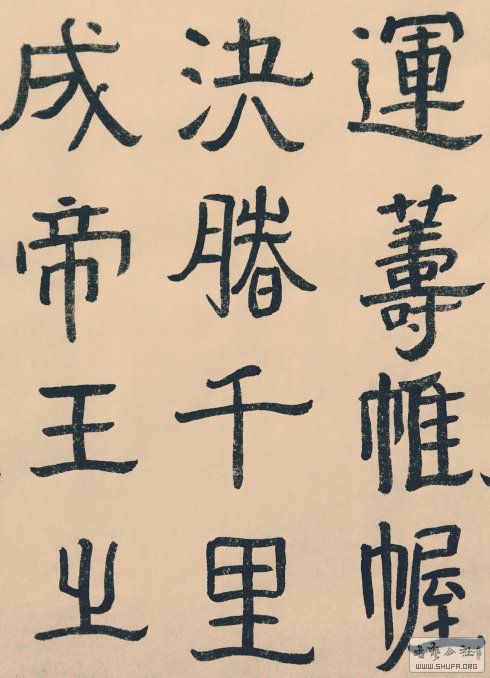 運籌帷幄
決勝千里
成帝王之
WWW.SHUFA.ORG